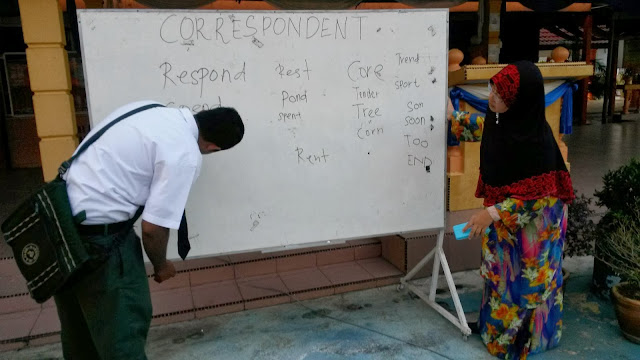 CORRESPONDENT
Respond
Spend
Rest
Pond
spent
Rent
Core
Tinder
Tree
Corn
Trend
sport
Son
Soon
TOO
END